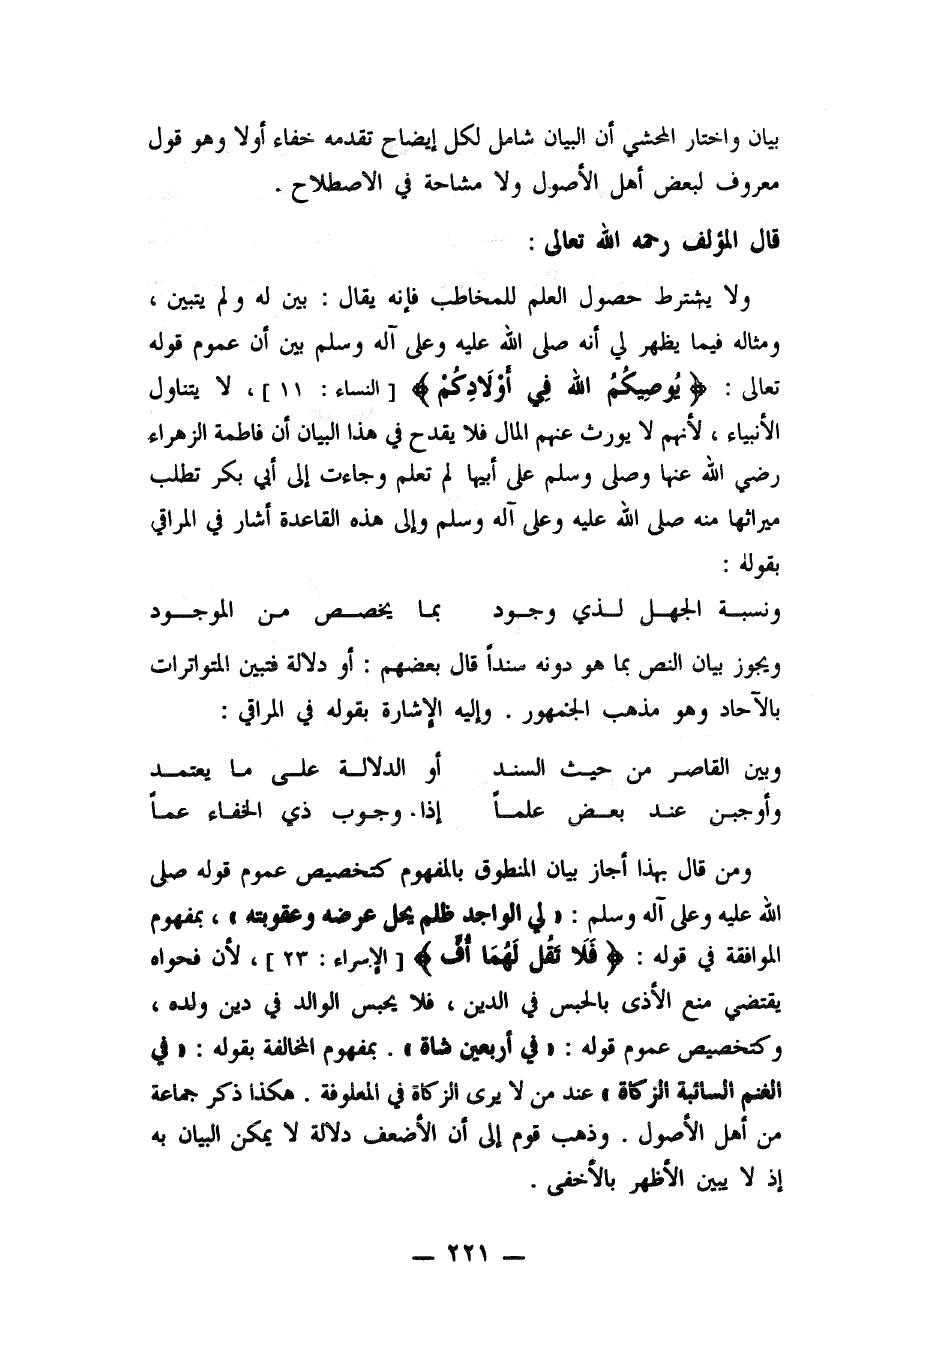 بيان واختار المحشي أن البيان شامل لكل إيضاح تقدمه خفاء أولا وهو قول
معروف لبعض أهل الأصول ولا مشاحة في الاصطلاح .
قال المؤلف رحمه الله تعالى :
ولا يشترط حصول العلم للمخاطب فإنه يقال : بين له ولم يتبين ،
ومثاله فيما يظهر لي أنه صلى الله عليه وعلى آله وسلم بين أن عموم قوله
تعالى : ﴿ يُوصِيكُمُ الله فِي أَوْلَادِكُمْ ﴾ [ النساء : ١١ ] ، لا يتناول
الأنبياء ، لأنهم لا يورث عنهم المال فلا يقدح في هذا البيان أن فاطمة الزهراء
رضي الله عنها وصلى وسلم على أبيها لم تعلم وجاءت إلى أبي بكر تطلب
ميراثها منه صلى الله عليه وعلى آله وسلم وإلى هذه القاعدة أشار في المراقي
بقوله :
ونسبـة الجهـل لـذي وجـود بمـا يخصـص مـن الموجـود
ويجوز بيان النص بما هو دونه سنداً قال بعضهم : أو دلالة فتبين المتواترات
بالآحاد وهو مذهب الجمهور . وإليه الإشارة بقوله في المراقي :
وبين القاصر من حيث السند أو الدلالـة علـى مـا يعتمـد
وأوجبـن عنـد بعـض علمـاً إذا وجـوب ذي الخفـاء عمـاً
ومن قال بهذا أجاز بيان المنطوق بالمفهوم كتخصيص عموم قوله صلى
الله عليه وعلى آله وسلم : « لي الواجد ظلم يحل عرضه وعقوبته » ، بمفهوم
الموافقة في قوله : ﴿ فَلَا تَقُل لَهُمَا أُفٍّ ﴾ [ الإسراء : ٢٣ ] ، لأن فحواه
يقتضي منع الأذى بالحبس في الدين ، فلا يحبس الوالد في دين ولده ،
وكتخصيص عموم قوله : « في أربعين شاة » . بمفهوم المخالفة بقوله : « في
الغنم السائبة الزكاة » عند من لا يرى الزكاة في المعلوفة . هكذا ذكر جماعة
من أهل الأصول . وذهب قوم إلى أن الأضعف دلالة لا يمكن البيان به
إذ لا يبين الأظهر بالأخفى .
— ٢٢١ —